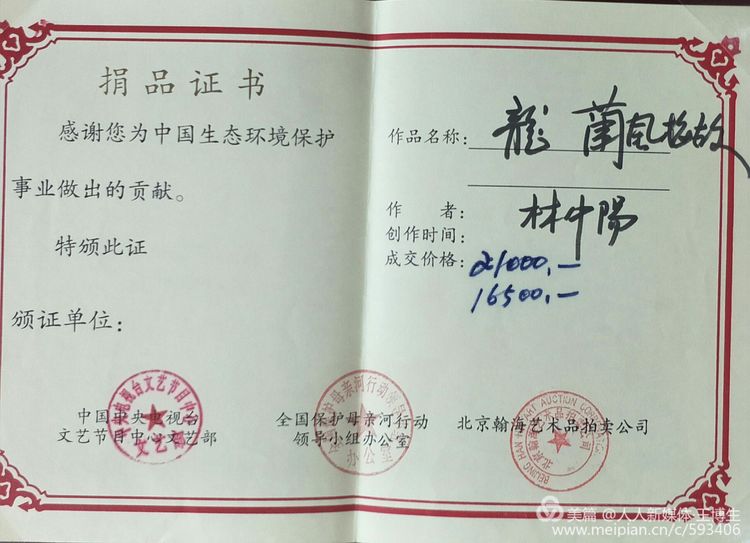 捐品证书
感谢您为中国生态环境保护
事业做出的贡献。
特颁此证
颁证单位：
中国中央电视台
文艺节目中心文艺部
全国保护母亲河行动
领导小组办公室
作品名称：龍 蘭
作 者：林中陽
创作时间：
成交价格：21000,—
16500,—
北京翰海艺术品拍卖公司
美篇 @人人新媒体·王博生
www.meipian.cn/c/593406